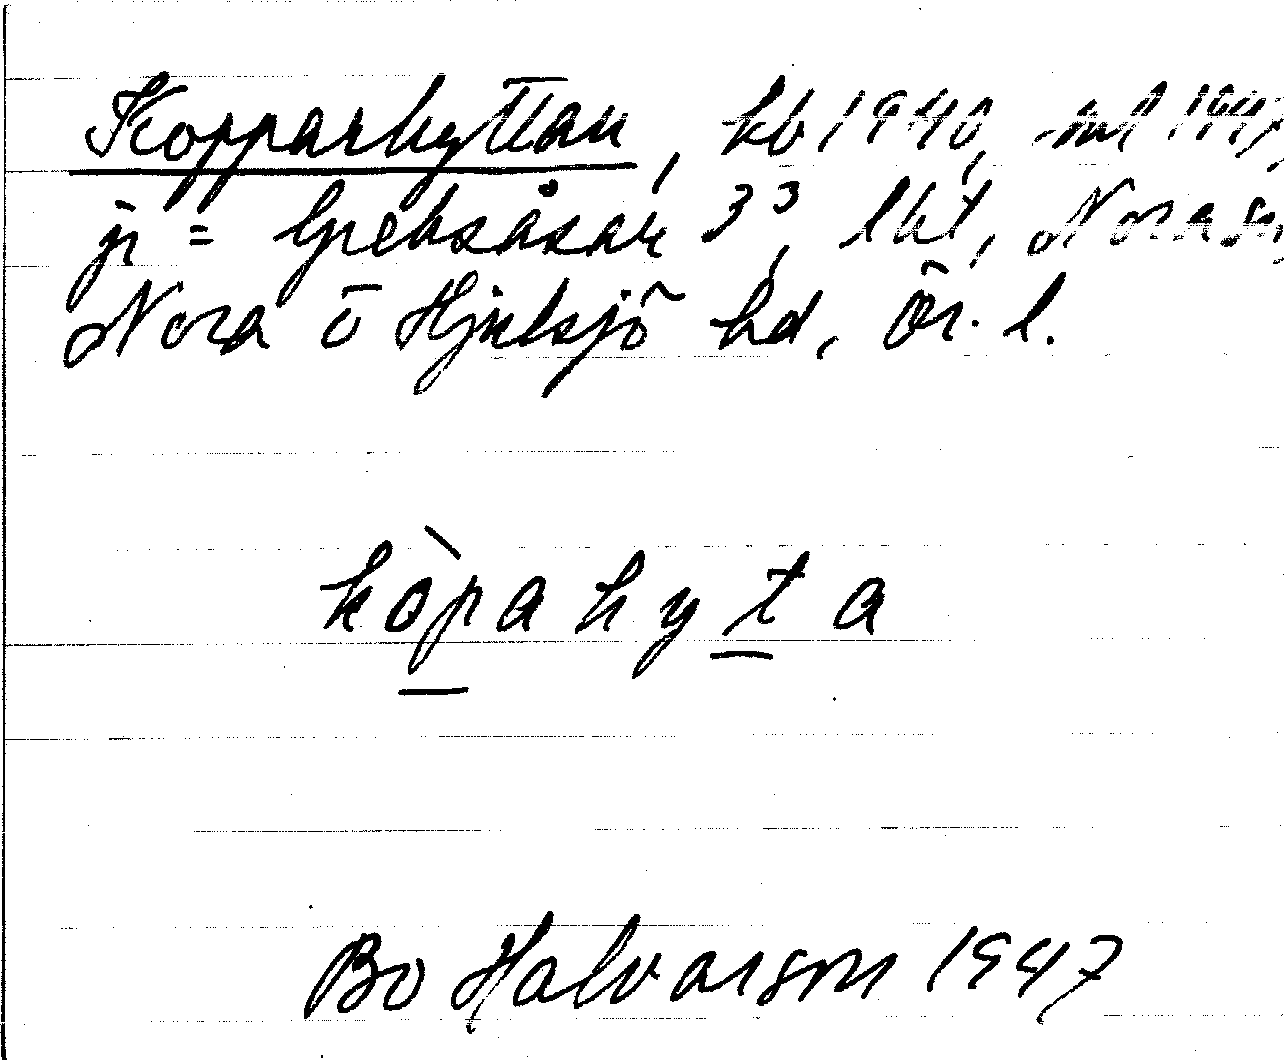 Kopparhyttan, kb 1940, ml 1947,
jr = Greksåsar 3³, lht, Nora sn,
Nora o Hjulsjö hd, Ör. l.
kòpahyta
Bo Halvarson 1947